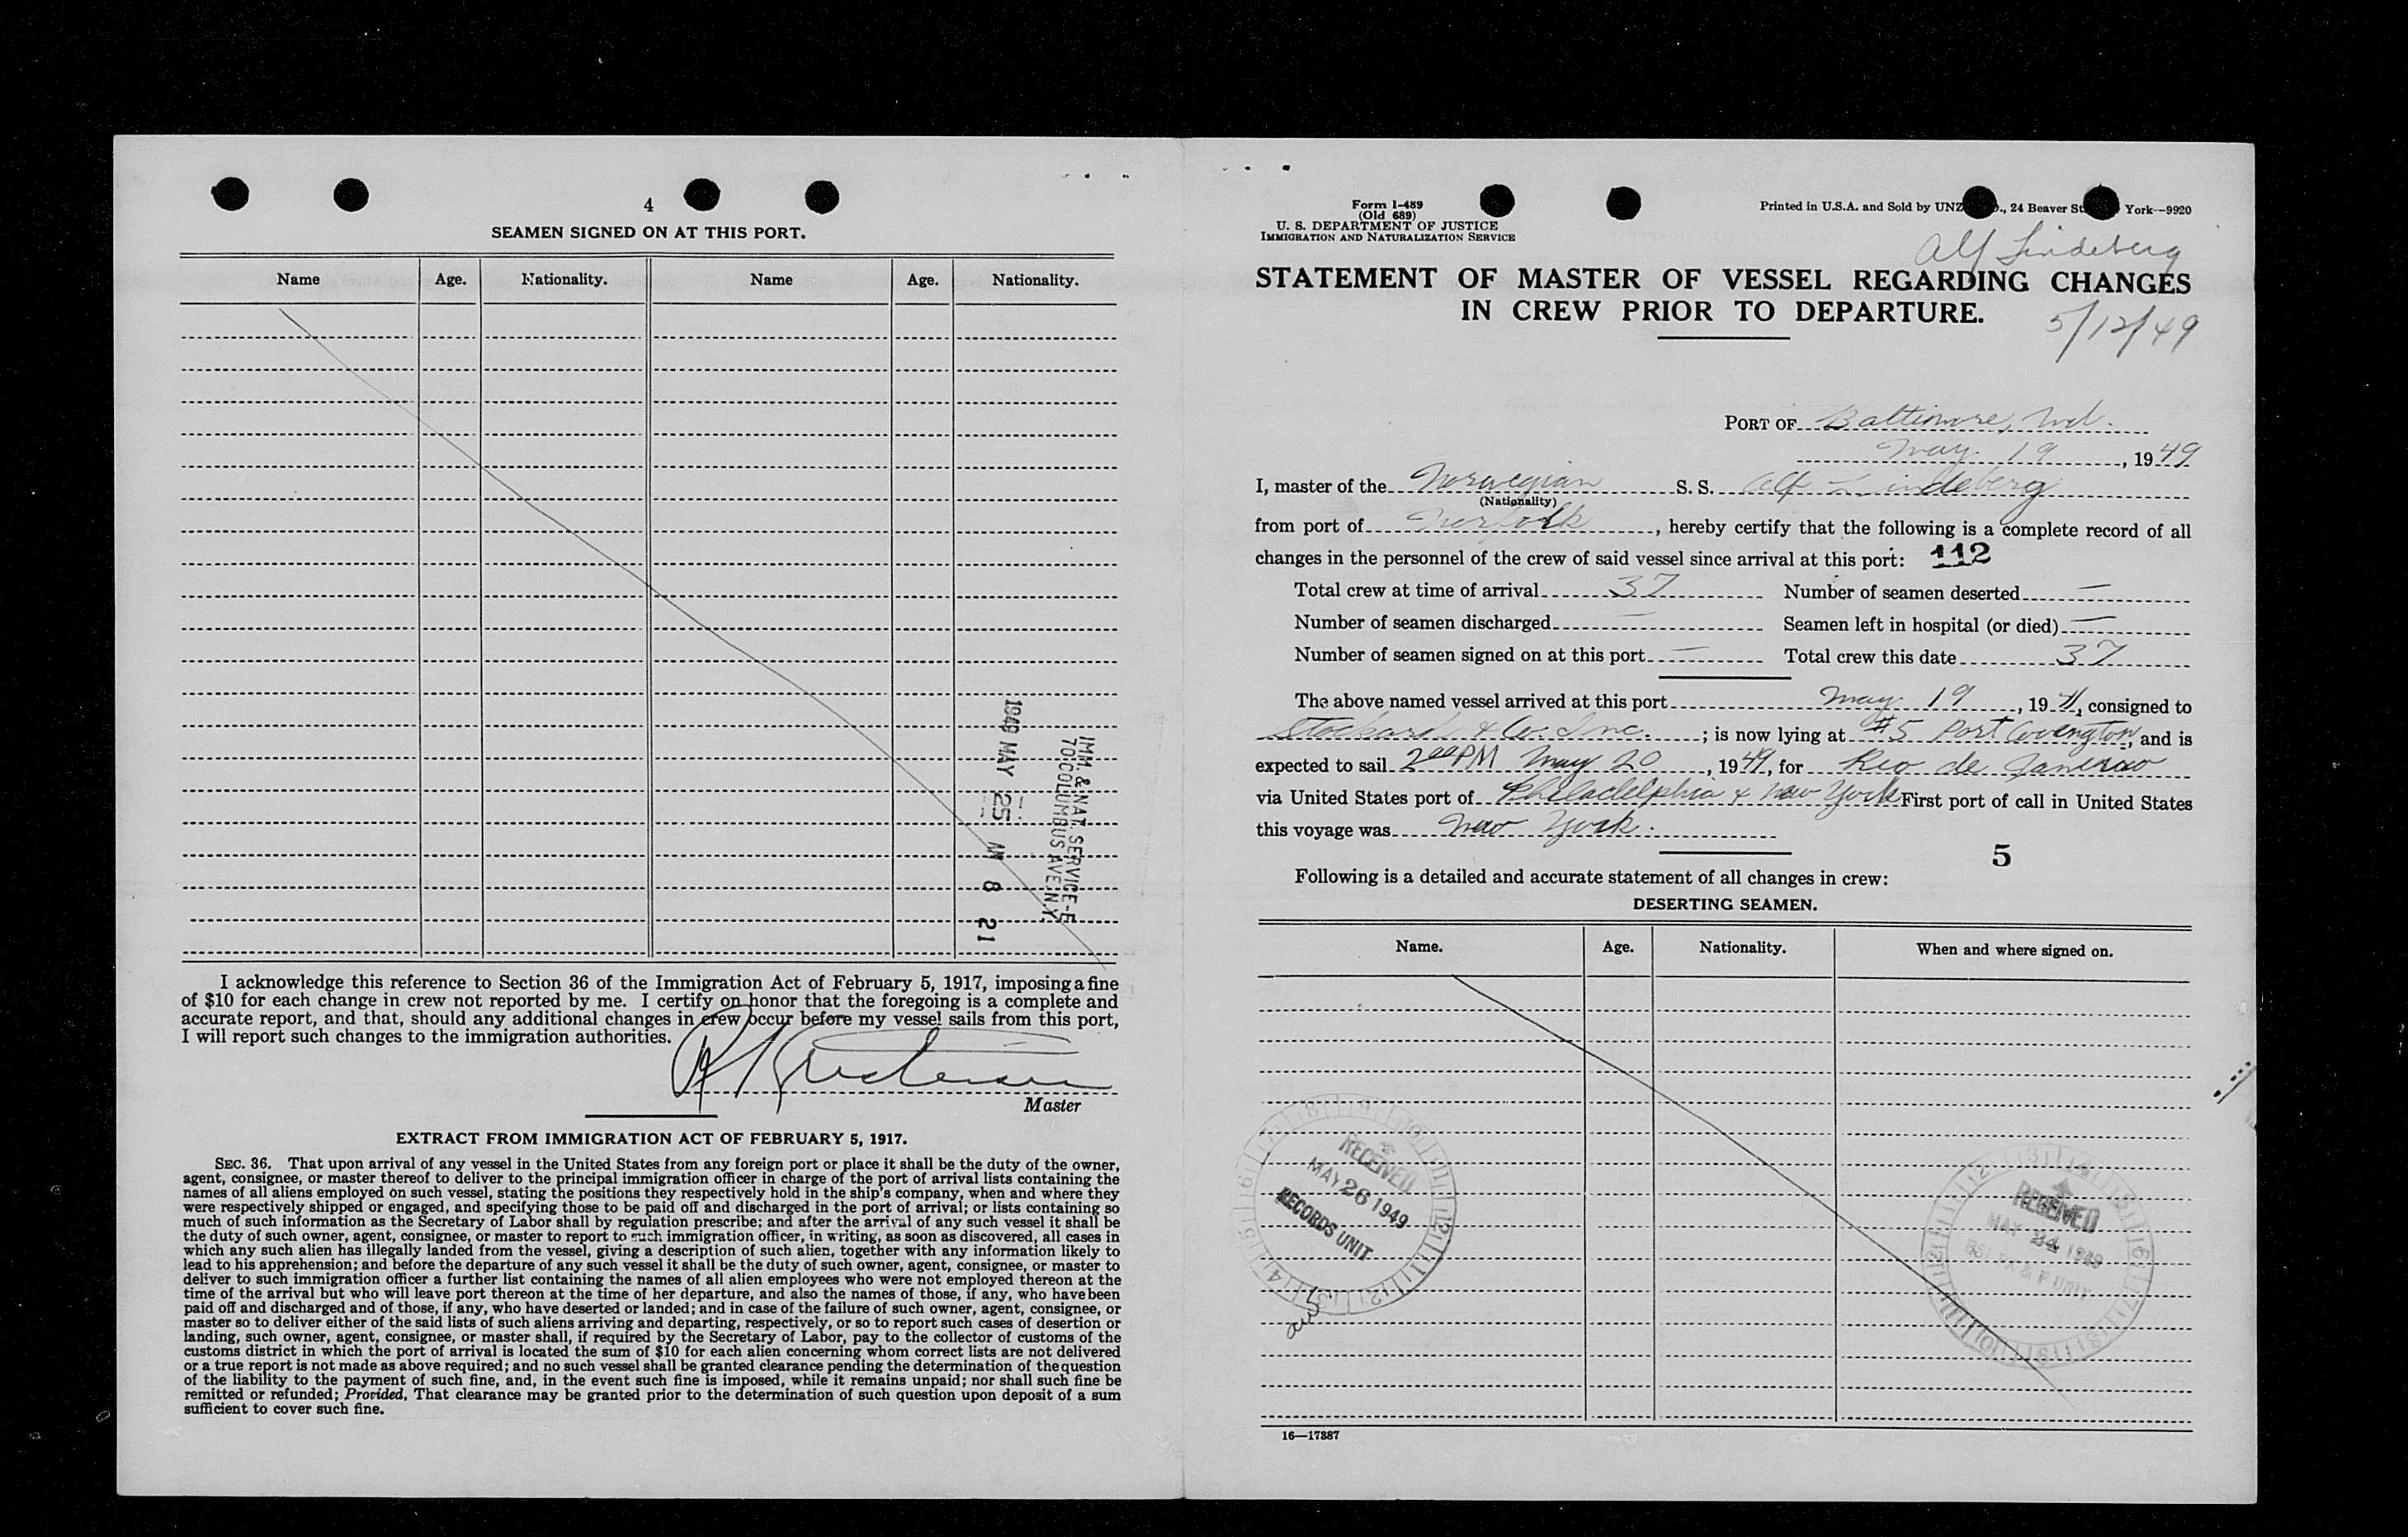 4
SEAMEN SIGNED ON AT THIS PORT.
Name Age. Nationality. Name Age. Nationality.
IMM. & NAT. SERVICE-E
70 COLUMBUS AVE. N.Y.
1949 MAY 25 AM 8 21
I acknowledge this reference to Section 36 of the Immigration Act of February 5, 1917, imposing a fine
of $10 for each change in crew not reported by me. I certify on honor that the foregoing is a complete and
accurate report, and that, should any additional changes in crew occur before my vessel sails from this port,
I will report such changes to the immigration authorities.
Master
EXTRACT FROM IMMIGRATION ACT OF FEBRUARY 5, 1917.
SEC. 36. That upon arrival of any vessel in the United States from any foreign port or place it shall be the duty of the owner,
agent, consignee, or master thereof to deliver to the principal immigration officer in charge of the port of arrival lists containing the
names of all aliens employed on such vessel, stating the positions they respectively hold in the ship's company, when and where they
were respectively shipped or engaged, and specifying those to be paid off and discharged in the port of arrival; or lists containing so
much of such information as the Secretary of Labor shall by regulation prescribe; and after the arrival of any such vessel it shall be
the duty of such owner, agent, consignee, or master to report to such immigration officer, in writing, as soon as discovered, all cases in
which any such alien has illegally landed from the vessel, giving a description of such alien, together with any information likely to
lead to his apprehension; and before the departure of any such vessel it shall be the duty of such owner, agent, consignee, or master to
deliver to such immigration officer a further list containing the names of all alien employees who were not employed thereon at the
time of the arrival but who will leave port thereon at the time of her departure, and also the names of those, if any, who have been
paid off and discharged and of those, if any, who have deserted or landed; and in case of the failure of such owner, agent, consignee, or
master so to deliver either of the said lists of such aliens arriving and departing, respectively, or so to report such cases of desertion or
landing, such owner, agent, consignee, or master shall, if required by the Secretary of Labor, pay to the collector of customs of the
customs district in which the port of arrival is located the sum of $10 for each alien concerning whom correct lists are not delivered
or a true report is not made as above required; and no such vessel shall be granted clearance pending the determination of the question
of the liability to the payment of such fine, and, in the event such fine is imposed, while it remains unpaid; nor shall such fine be
remitted or refunded; Provided, That clearance may be granted prior to the determination of such question upon deposit of a sum
sufficient to cover such fine.
Form I-489
(Old 689)
U. S. DEPARTMENT OF JUSTICE
IMMIGRATION AND NATURALIZATION SERVICE
Printed in U.S.A. and Sold by UNZ 24 Beaver St York--9920
Alf Lindeberg
STATEMENT OF MASTER OF VESSEL REGARDING CHANGES
IN CREW PRIOR TO DEPARTURE.
5/12/49
PORT OF Baltimore, Md.
May 19, 1949
I, master of the Norwegian S. S. Alf Lindeberg
(Nationality)
from port of Norfolk, hereby certify that the following is a complete record of all
changes in the personnel of the crew of said vessel since arrival at this port: 112
Total crew at time of arrival 37 Number of seamen deserted —
Number of seamen discharged — Seamen left in hospital (or died) —
Number of seamen signed on at this port — Total crew this date 37
The above named vessel arrived at this port May 19, 19 , consigned to
Stockard & Co. Inc.; is now lying at #5 Port Covington, and is
expected to sail 2 00 PM May 20, 1949, for Rio de Janeirao
via United States port of Philadelphia & New York First port of call in United States
this voyage was New York.
5
Following is a detailed and accurate statement of all changes in crew:
DESERTING SEAMEN.
Name. Age. Nationality. When and where signed on.
RECEIVED
MAY 26 1949
RECORDS UNIT
RECEIVED
MAY 24 1949
16—17887